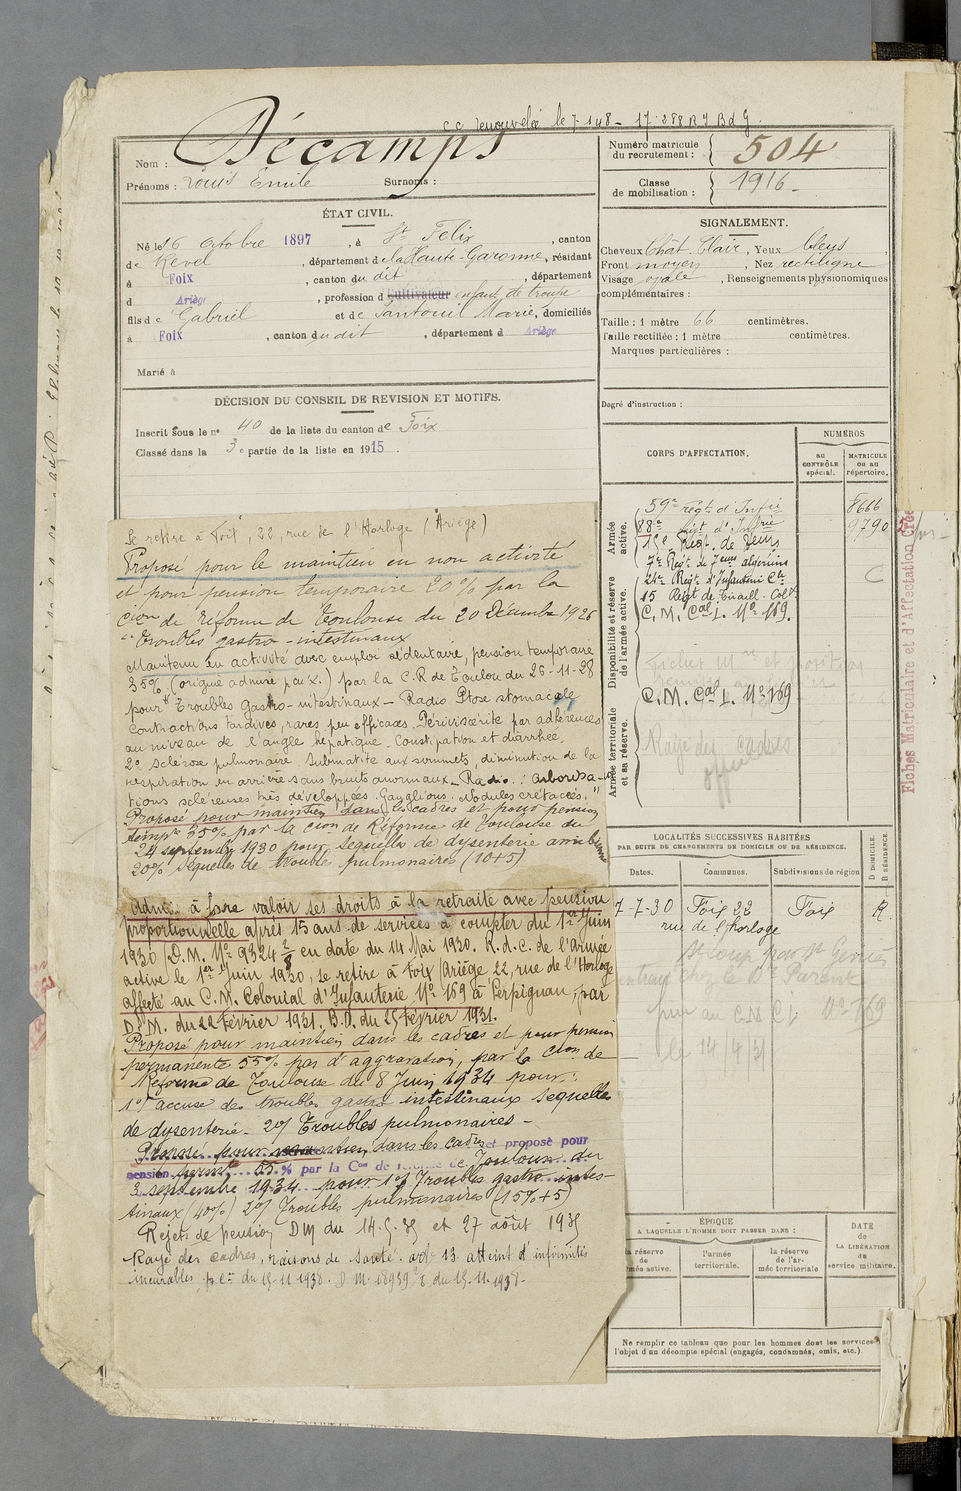 C.C. renouvelée le 7-1-48 - 17.288 RI BdG.
Nom : Décamps
Prénoms : Louis Emile Surnoms :
Numéro matricule du recrutement : 504
Classe de mobilisation : 1916
ÉTAT CIVIL.
Né le 16 octobre 1897, à St Felix, canton
de Revel, département de la Haute-Garonne, résidant
à Foix, canton du dit, département
d Ariège, profession d Cultivateur enfant de troupe
fils de Gabriel et de Santouil Marie, domiciliés
à Foix, canton du dit, département d Ariège
Marié à
SIGNALEMENT.
Cheveux Chât. Clair, Yeux bleus
Front moyen, Nez rectiligne
Visage ovale, Renseignements physionomiques
complémentaires :
Taille : 1 mètre 66 centimètres.
Taille rectifiée : 1 mètre centimètres.
Marques particulières :
Degré d'instruction :
DÉCISION DU CONSEIL DE REVISION ET MOTIFS.
Inscrit sous le n° 40 de la liste du canton de Foix
Classé dans la 3e partie de la liste en 1915.
CORPS D'AFFECTATION.
NUMÉROS
AU CONTRÔLE spécial.
MATRICULE OU AU répertoire.
Armée active.
59e régt d'Infie 8666
88e Régt d'Infrie 9790
Régt. de
Disponibilité et réserve de l'armée active.
7e Régt de algériens
24e Régt d'Infanterie Cle
15 Régt de Tiraill. Colx
C.M. Cal I. N° 169.
C.M. Cal I. N° 169
Armée territoriale et sa réserve.
Rayé des cadres
Fiches Matriculaire et d'Affectation Créées
Se retire à Foix, 22, rue de l'Horloge (Ariège)
Proposé pour le maintien en non activité
et pour pension temporaire 20% par la
cion de réforme de Toulouse du 20 Décembre 1926
"troubles gastro-intestinaux
Maintenu en activité avec emploi sédentaire, pension temporaire
35% (origine admise par x.) par la C.R de Toulon du 26-11-28
pour Troubles gastro-intestinaux - Radio Ptose stomacale
contractions tardives, rares peu efficaces. Périviscérite par adhérences
au niveau de l'angle hépatique. Constipation et diarrhée.
2° Sclérose pulmonaire. Submatité aux sommets, diminution de la
respiration en arrière sans bruits anormaux - Radio : arborisa-
tions scléreuses très développées. Ganglions. Nodules crétacés. "
Proposé pour maintien dans les cadres et pour pension
tempre 35% par la cion de Réforme de Toulouse du
24 septembre 1930 pour séquelles de dysenterie amibienne
20% séquelles de trouble pulmonaires (10+5)
Admis à faire valoir ses droits à la retraite avec pension
proportionnelle après 15 ans de services à compter du 1er Juin
1930 / D.M. N° 9324 2/8 en date du 14 Mai 1930. R.d.c. de l'Armée
active le 1er Juin 1930, se retire à Foix / Ariège, 22, rue de l'Horloge
affecté au C.M. Colonial d'Infanterie N° 169 à Perpignan, par
D.M. du 22 Février 1931, B.O. du 25 Février 1931.
Proposé pour maintien dans les cadres et pour pension
permanente 55% pas d'aggravation, par la Cion de
Réforme de Toulouse du 8 Juin 1934 pour :
1°/ accuse des troubles gastro intestinaux séquelles
de dysenterie - 2°/ Troubles pulmonaires -
Proposé pour maintien dans les cadres et proposé pour
pension permte 55 % par la Con de réforme de Toulouse du
3 septembre 1934 pour 1°/ Troubles gastro-intes-
tinaux (40%) 2°/ Troubles pulmonaires (15%+5)
Rejet de pension DM du 14-5-35 et 27 août 1935
Rayé des cadres, raisons de santé. art 13. atteint d'infirmités
incurables, du 15-11 1938. D M 18939 2/8 du 15.11.1938.
LOCALITÉS SUCCESSIVES HABITÉES
PAR SUITE DE CHANGEMENTS DE DOMICILE OU DE RÉSIDENCE.
Dates. Communes. Subdivisions de région
D DOMICILE. R RÉSIDENCE.
7-7-30 Foix 22 Foix R.
rue de l'horloge
St Loup par St Geniès
chez le Dr Parent
au C.M. C.I. N° 169
le 14/4/31
ÉPOQUE
A LAQUELLE L'HOMME DOIT PASSER DANS :
la réserve de l'armée active.
l'armée territoriale.
la réserve de l'armée territoriale
DATE de LA LIBÉRATION du service militaire.
Ne remplir ce tableau que pour les hommes dont les services
l'objet d'un décompte spécial (engagés, condamnés, omis, etc.).